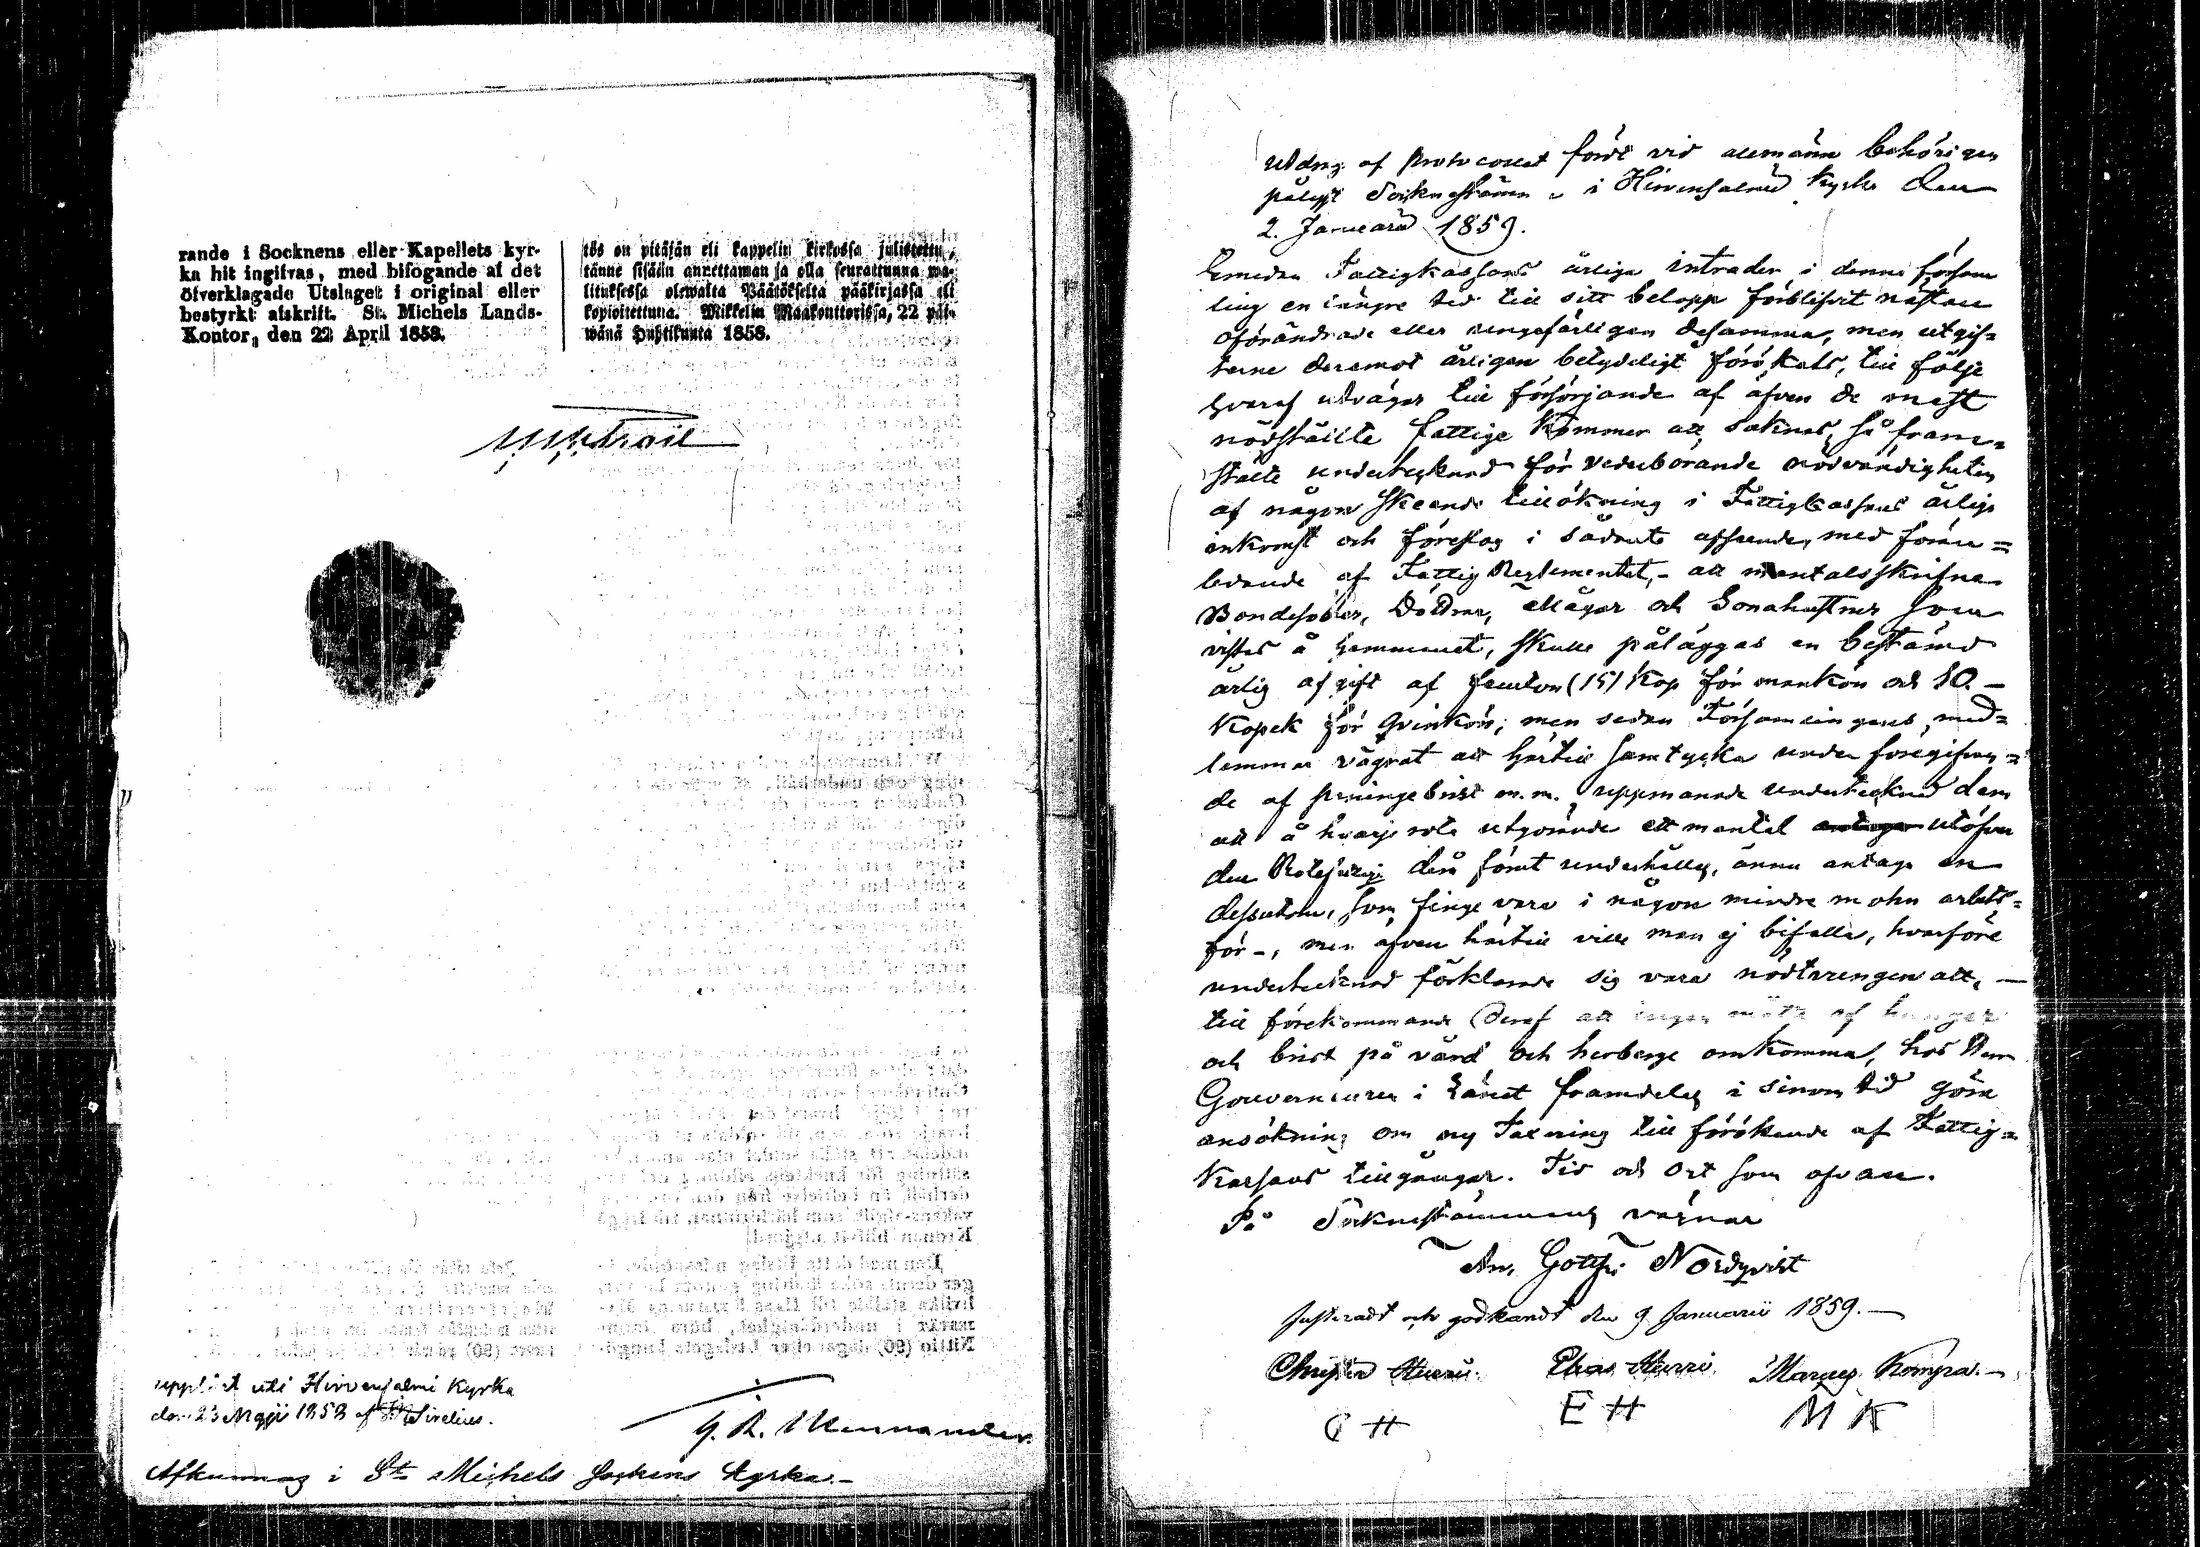 rande i Socknens eller Kapellets kyr-
ka hit ingifvas, med bifogande af det
öfverklagade Utslaget i original eller
bestyrkt afskrift. St. Michels Lands-
Kontor, den 22 April 1858.
tös on pitäjän eli kappelin kirkossa julistettu,
tänne sisään annettaman ja olla seurattunna wa-
lituksessa olewalta Päätökselta pääkirjassa eli
kopioitettuna. Mikkelin Maakonttorissa, 22 päi-
wänä Huhtikuuta 1858.
uppläst uti Hirvensalmi Kyrka
den 23 Maji 1858 af Sirelius.
Afkunnas i St Michels Sockens Kyrka.-
Utdrag af Protocollet fördt vid allmänn behörigen
pålyst Socknestämma i Hirvensalmi Kyrka den
2. Januarii 1859.
Emedan Fattigkassans årliga intrader i denna församm
ling en längre tid till sitt belopp förblifvit nästan
oförändrade eller ungefärligen desamma, men utgif=
terne deremot årligen betydeligt förökats, till följe
hvaraf utvägar till försörjande af äfven de mest
nödstälte fattige kommer att saknas, så fram=
stälte undertecknad för vederbörande nödvändigheten
af någon skeende tillökning i Fattigkassans årliga
inkomst och föreslog i sådant afseende, med föran=
ledande af Fattig Reglementet,- att mantalsskrifna
Bondesöner, Döttrar, Mågar och Sonahustrur som
vistas å hemmanet, skulle påläggas en bestämd
årlig afgift af femton (15) Kop för mankön och 10.-
Kopek för qvinkön; men sedan Församlingens med=
lemmar vägrat att härtill samtycka under föregifvan=
de af penningebrist m.m., uppmanade undertecknad dem
att å hvarje rote utgörande ett mantal utöfver
den Rotehjon der förut underhålles, ännu antaga en
dessutom, som finge vara i någon mindre mohn arbets=
för-, men äfven härtill ville man ej bifalla, hvarföre
undertecknad förklarade sig vara nödtvungen att,-
till förekommande deraf att ingen måtte af hunger
och brist på vård och herberge omkomma, hos Herr
Gouverneuren i Länet framdeles i sinom tid göra
ansökning om ny Taxering till förökande af Fattig=
Kassans tillgångar. Tid och Ort som ofvan.
På Socknestämmans vägnar
An. Gottfr. Nordqvist
Justeradt och godkändt den 9 Januarii 1859.-
C H
E H
M K